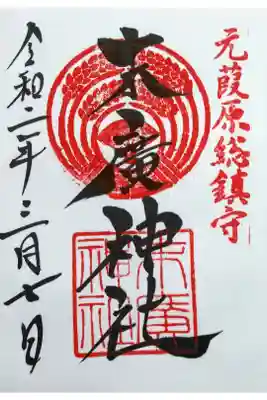 元葭原総鎮守
末廣神社
末廣神社
令和二年三月七日